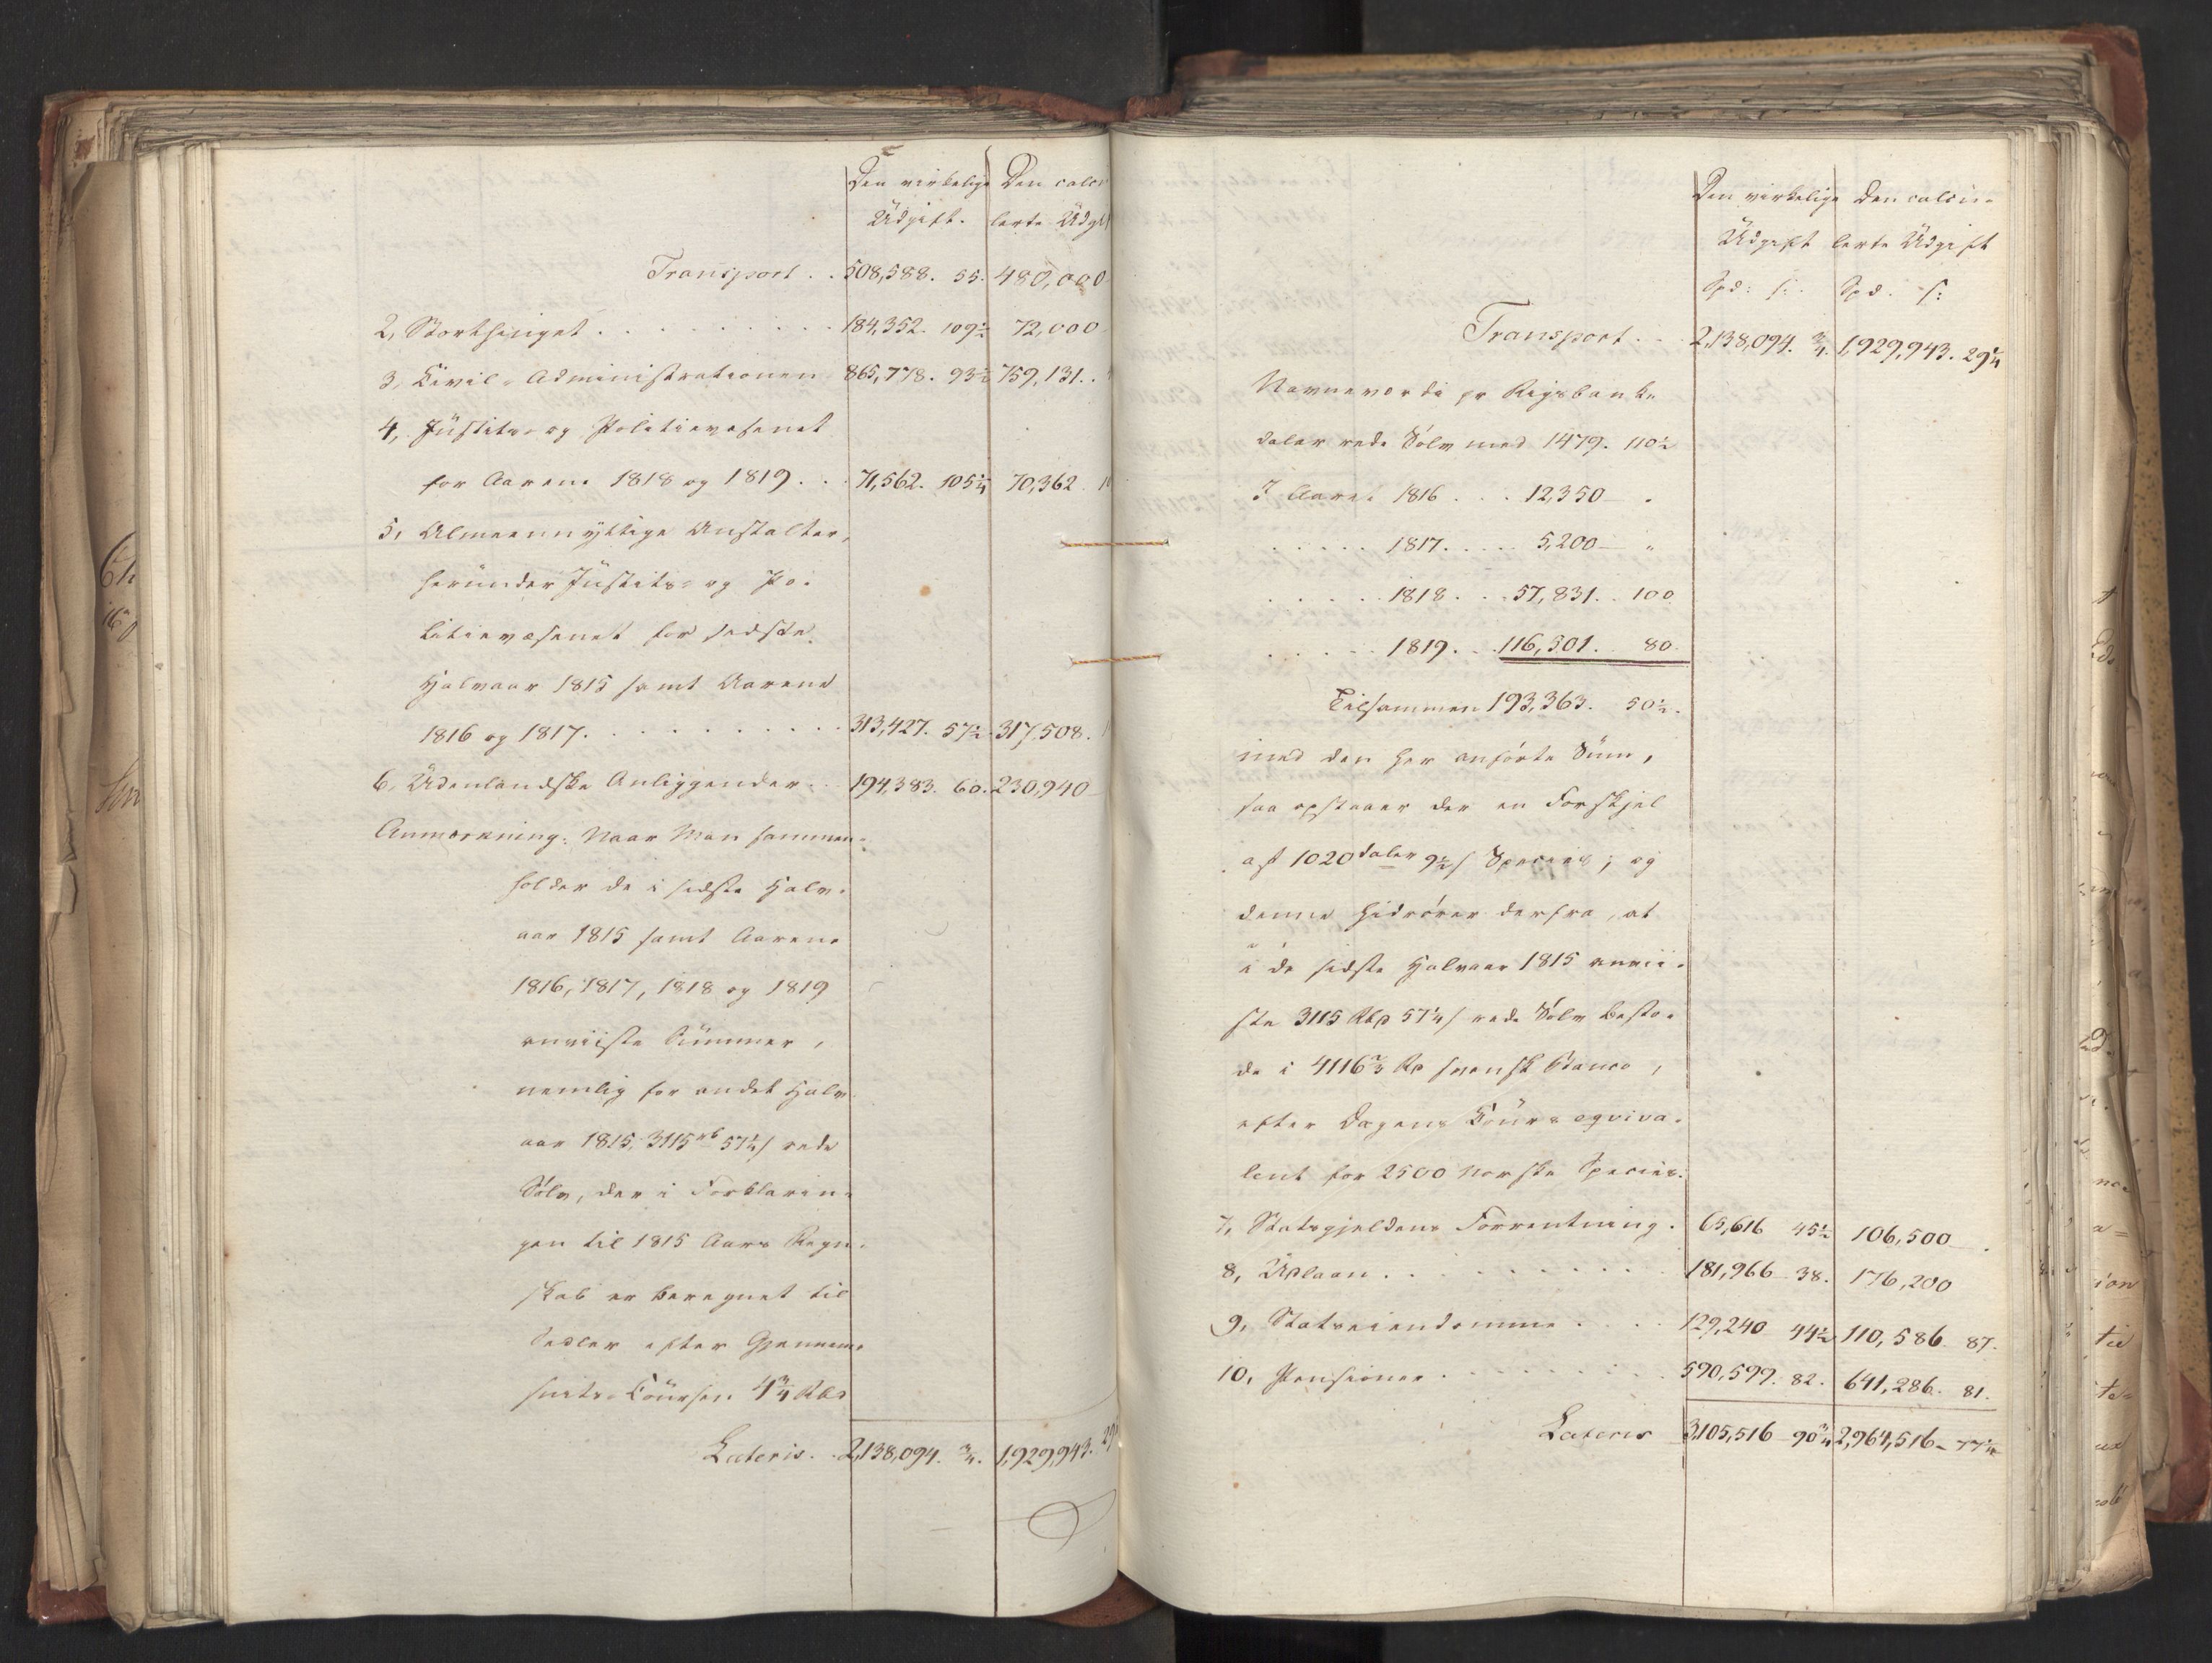 Den virkelige Den calcu
Udgift. lerte Udgif
Transport . . 508,588. 55. 480,000
2, Storthinget . . . . . . . . . 184,352. 109½ 72,000
3, Civil-Administrationen 865,778. 93½ 759,131. .
4, Justits- og Politievæsenet
for Aarene 1818 og 1819 . . . 71,562. 105¼ 70,362
5, Almeennyttige Anstalter,
herunder Justits- og Po-
litievæsenet for sidste
Halvaar 1815 samt Aarene
1816 og 1817. . . . . . . . . 313,427. 57½. 317,508.
6, Udenlandske Anliggender . . 194,383. 60. 230,940
Anmærkning: Naar Man sammen-
holder de i sidste Halv-
aar 1815 samt Aarene
1816, 1817, 1818 og 1819
anviiste Summer,
nemlig for andet Halv-
aar 1815, 3115 rb 57¼ s rede
Sølv, der i Forklarin-
gen til 1815 Aars Regn-
skab er beregnet til
Sedler efter Gjennem-
snits-Coursen 4¾ Rbd
Lateris. . 2,138,094. ¾. 1,929,943. 29
Den virkelige Den calcu-
Udgift lerte Udgift
Spd: s: Spd. s:
Transport . . 2,138,094. ¾. 1,929,943. 29¼
Navneværdi pr Rigsbank-
daler rede Sølv med 1479. 110½
I Aaret 1816 . . . 12,350 — "
. . . . . 1817. . . . 5,200 — "
. . . . . 1818. . . 57,831. . 100
. . . . . 1819. . . 116,501. 80.
Tilsammen 193,363. 50½.
med den her anførte Sum,
saa opstaaer der en Forskjel
af 1020 daler 9½ s Species; og
denne hidrører derfra, at
i de sidste Halvaar 1815 anvii-
ste 3115 Rbd 57¼ s rede Sølv besto-
de i 4116⅔ Rd svensk Banco,
efter Dagens Cours eqviva-
lent for 2500 norske Species.
7, Statsgjeldens Forrentning. 65,616 45½ 106,500 — .
8, Udlaan. . . . . . . . . 181,966 38. 176,200
9, Statseiendomme . . . . 129,240 44½ 110,586. 87.
10, Pensioner . . . . . . . . 590,599. 82. 641,286. 81.
Lateris 3,105,516 90¾ 2,964,516 – 77¼